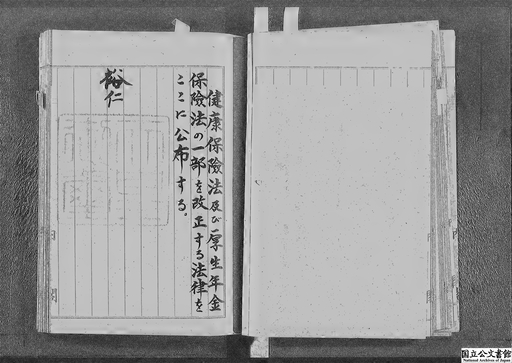 健康保險法及び厚生年金
保險法の一部を改正する法律を
ここに公布する。
裕仁
内
閣
内
閣
国立公文書館
National Archives of Japan